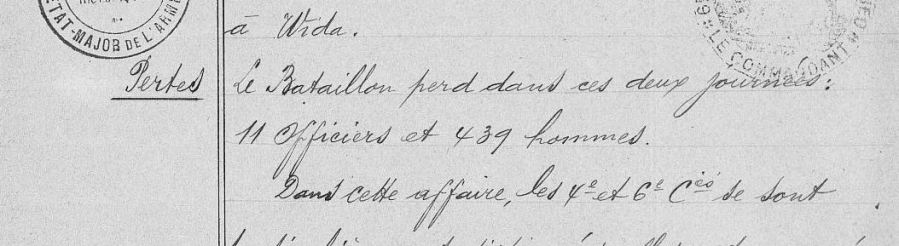 ETAT-MAJOR DE L'ARMÉE
LE COMMANDANT
à Wida.
Pertes
Le Bataillon perd dans ces deux journées:
11 Officiers et 439 hommes.
Dans cette affaire, les 4e et 6e Cies se sont